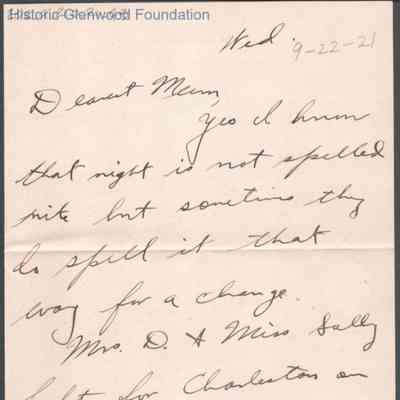 Historic Glenwood Foundation
Wed. 9-22-21
Dearest Mum,
Yes I know
that night is not spelled
nite but sometims they
do spell it that
way for a change.
Mrs. D. & Miss Sally
left for Charleston on